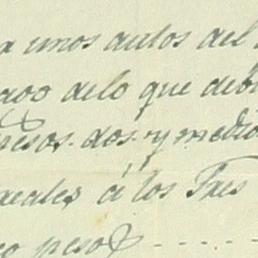 unos autos del
delo que deb
pesos. dos. y medio
reales á los Tres
peso